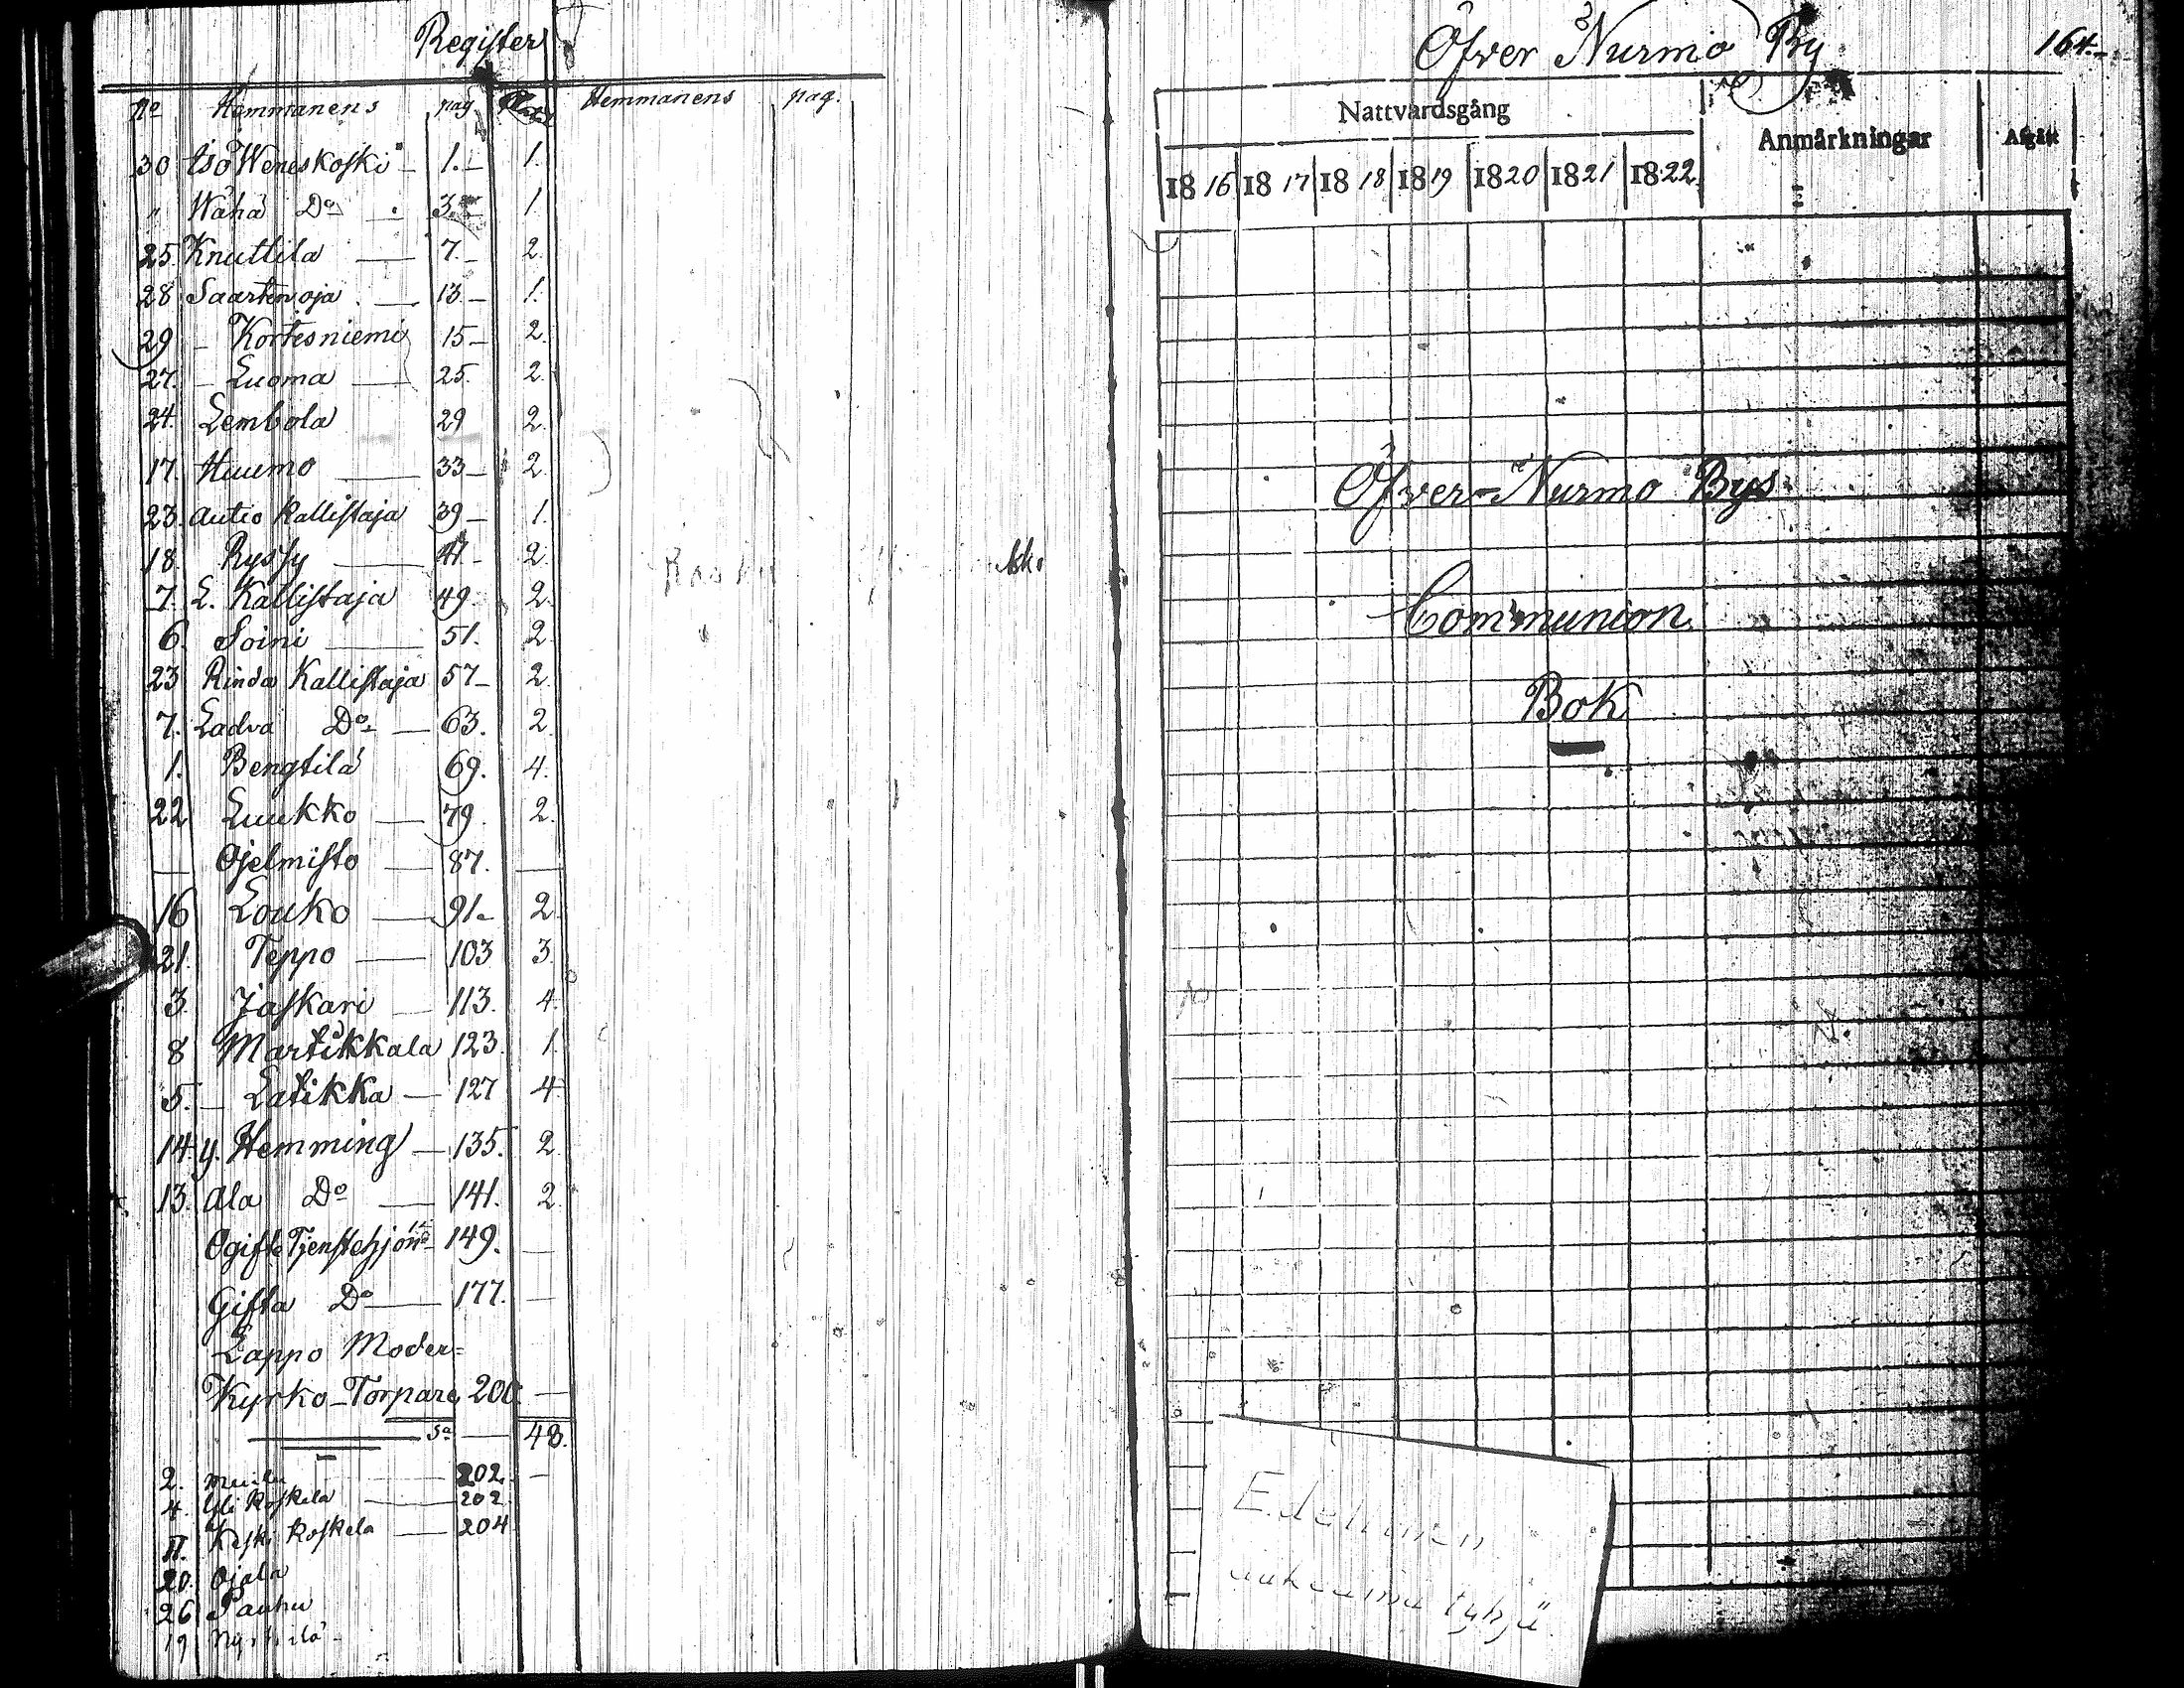 Register
No Hemmanens pag. Hemmanens pag.
30 Iso Weneskoski 1. 1.
" Wähä Do 3. 1.
25. Knuttila 7. 2.
28 Saarenoja 13 1.
29 Kortesniemi 15 2.
27. Luoma 25. 2.
24. Lembola 29 2.
17. Huumo 33 2.
23. Autio Kallistaja 39 1.
18. Ryssy 47 2.
7. L. Kallistaja 49. 2.
6. Soini 51. 2.
23 Rinda Kallistaja 57 2.
7. Ladva Do 63. 2.
1. Bengtilä 69. 4.
22 Luukko 79. 2.
— Ojelmisto 87. —
16 Louko 91. 2.
21. Teppo 103 3.
3. Jaskari 113. 4.
8 Martikkala 123. 1.
5. Latikka 127 4.
14. y. Hemming 135. 2.
13. Ala Do 141. 2.
Ogifte Tjenstehjon 149. —
Gifta Do 177. —
Lappo Moder=
Kyrko-Torpare 200. —
Sa 48.
2. Muilu 202. —
4. Yli Koskela 202.
11. Keski Koskela 204
20. Ojala
26 Pauhu
19
Öfver Nurmo By 164.
Nattvardsgång Anmärkningar Afgått
1816 1817 1818 1819 1820 1821 1822
Öfver-Nurmo Bys
Communion
Bok
Edellinen
aukeama tyhjä.